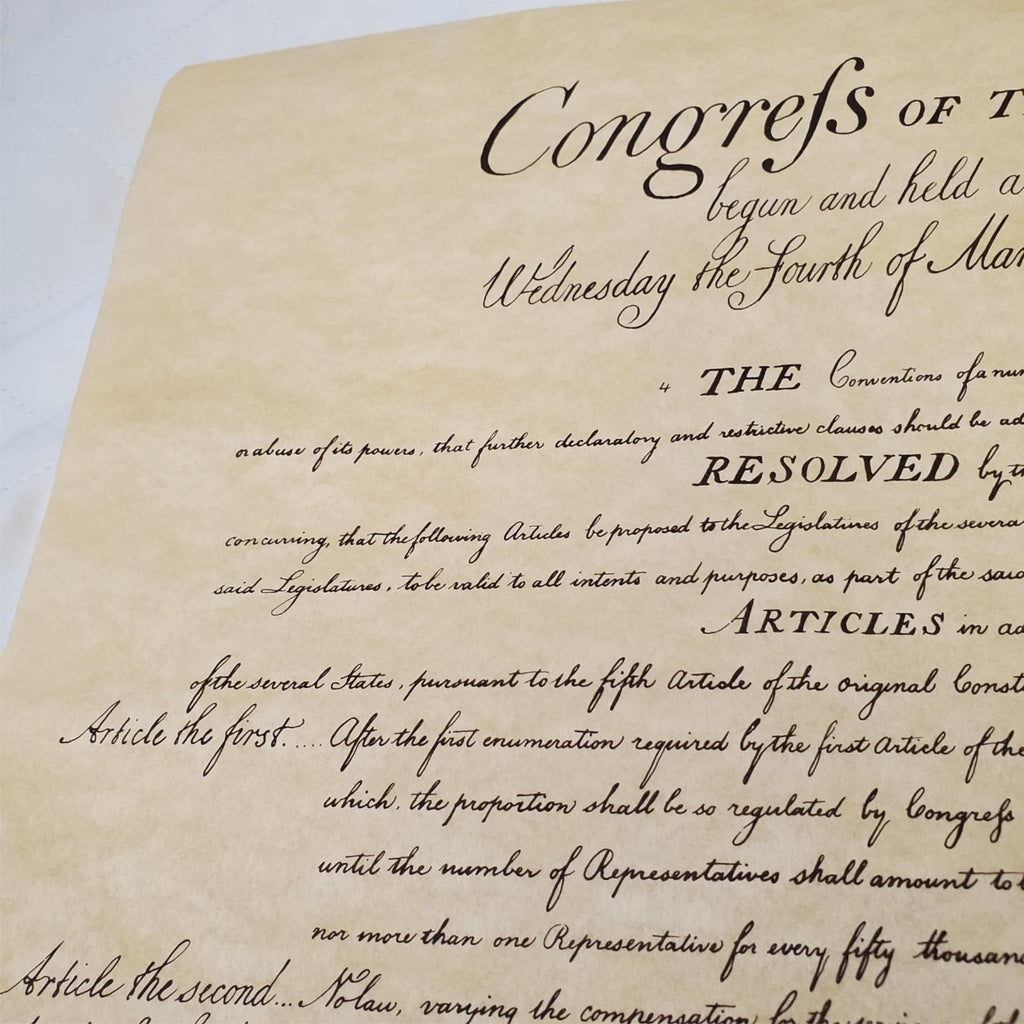 Congreſs OF T
begun and held a
Wednesday the Fourth of Mar
THE Conventions of a num
or abuse of its powers, that further declaratory and restrictive clauses should be ad
RESOLVED by th
concurring, that the following Articles be proposed to the Legislatures of the severa
said Legislatures, to be valid to all intents and purposes, as part of the said
ARTICLES in ad
of the several States, pursuant to the fifth Article of the original Const
Article the first..... After the first enumeration required by the first Article of the
which, the proportion shall be so regulated by Congreſs
until the number of Representatives shall amount to t
nor more than one Representative for every fifty thousan
Article the second... No law, varying the compensation for the